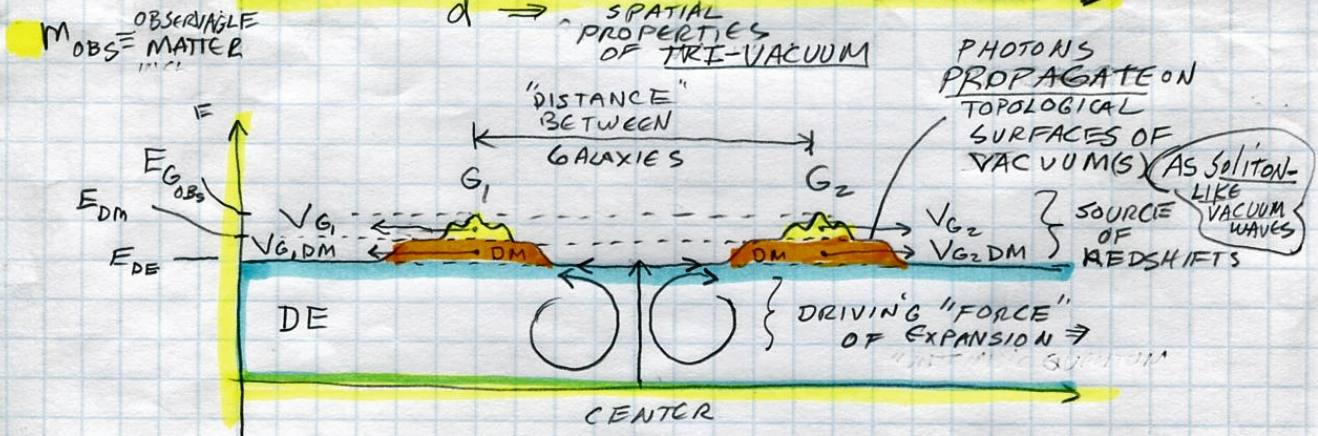 OBSERVABLE
M OBS ≡ MATTER
α ⇒ SPATIAL
PROPERTIES
OF TRI-VACUUM
PHOTONS
PROPAGATE ON
TOPOLOGICAL
SURFACES OF
VACUUM(S)
AS SOLITON-
LIKE
VACUUM
WAVES
"DISTANCE"
BETWEEN
GALAXIES
E
E G OBS
E DM
E DE
G1
G2
VG1
VG1DM
DM
DM
VG2
VG2DM
SOURCE
OF
REDSHIFTS
DE
DRIVING "FORCE"
OF EXPANSION ⇒
CENTER